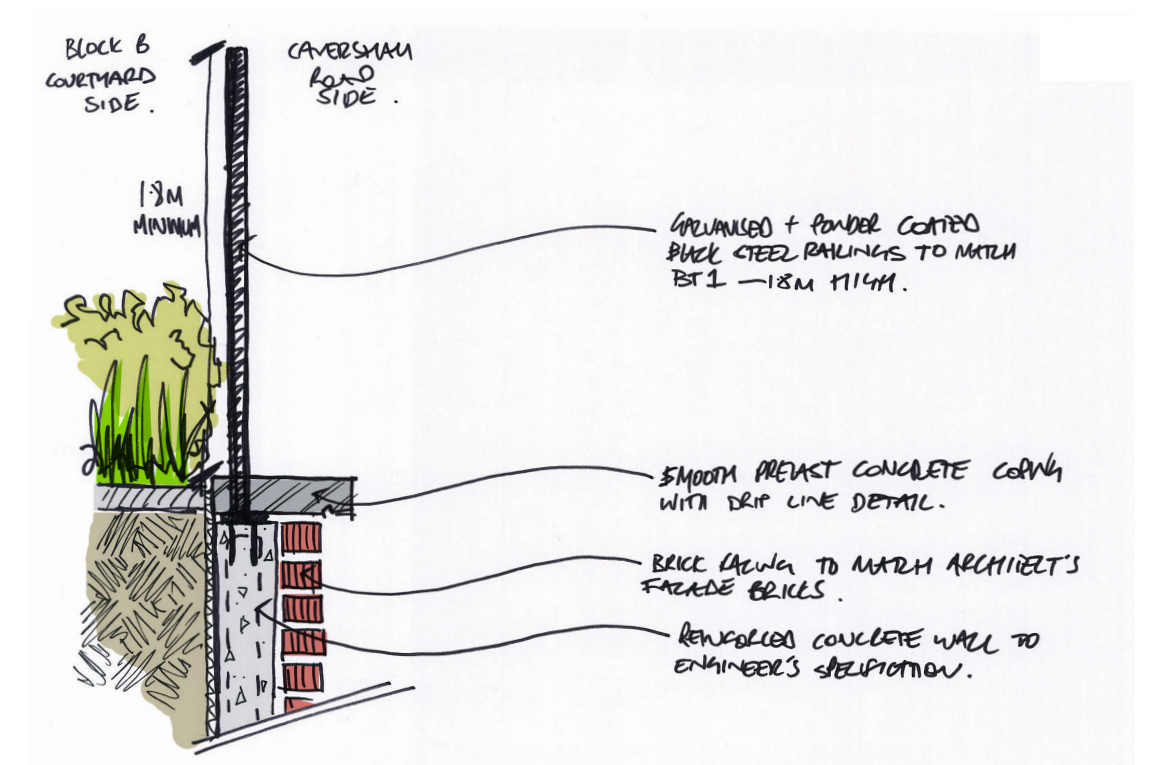 BLOCK B
COURTYARD
SIDE.
CAVERSHAM
ROAD
SIDE.
1.8M
MINIMUM
GALVANISED + POWDER COATED
BLACK STEEL RAILINGS TO MATCH
BT1 – 1.8M HIGH.
SMOOTH PRECAST CONCRETE COPING
WITH DRIP LINE DETAIL.
BRICK FACING TO MATCH ARCHITECT'S
FACADE BRICKS.
REINFORCED CONCRETE WALL TO
ENGINEER'S SPECIFICTION.